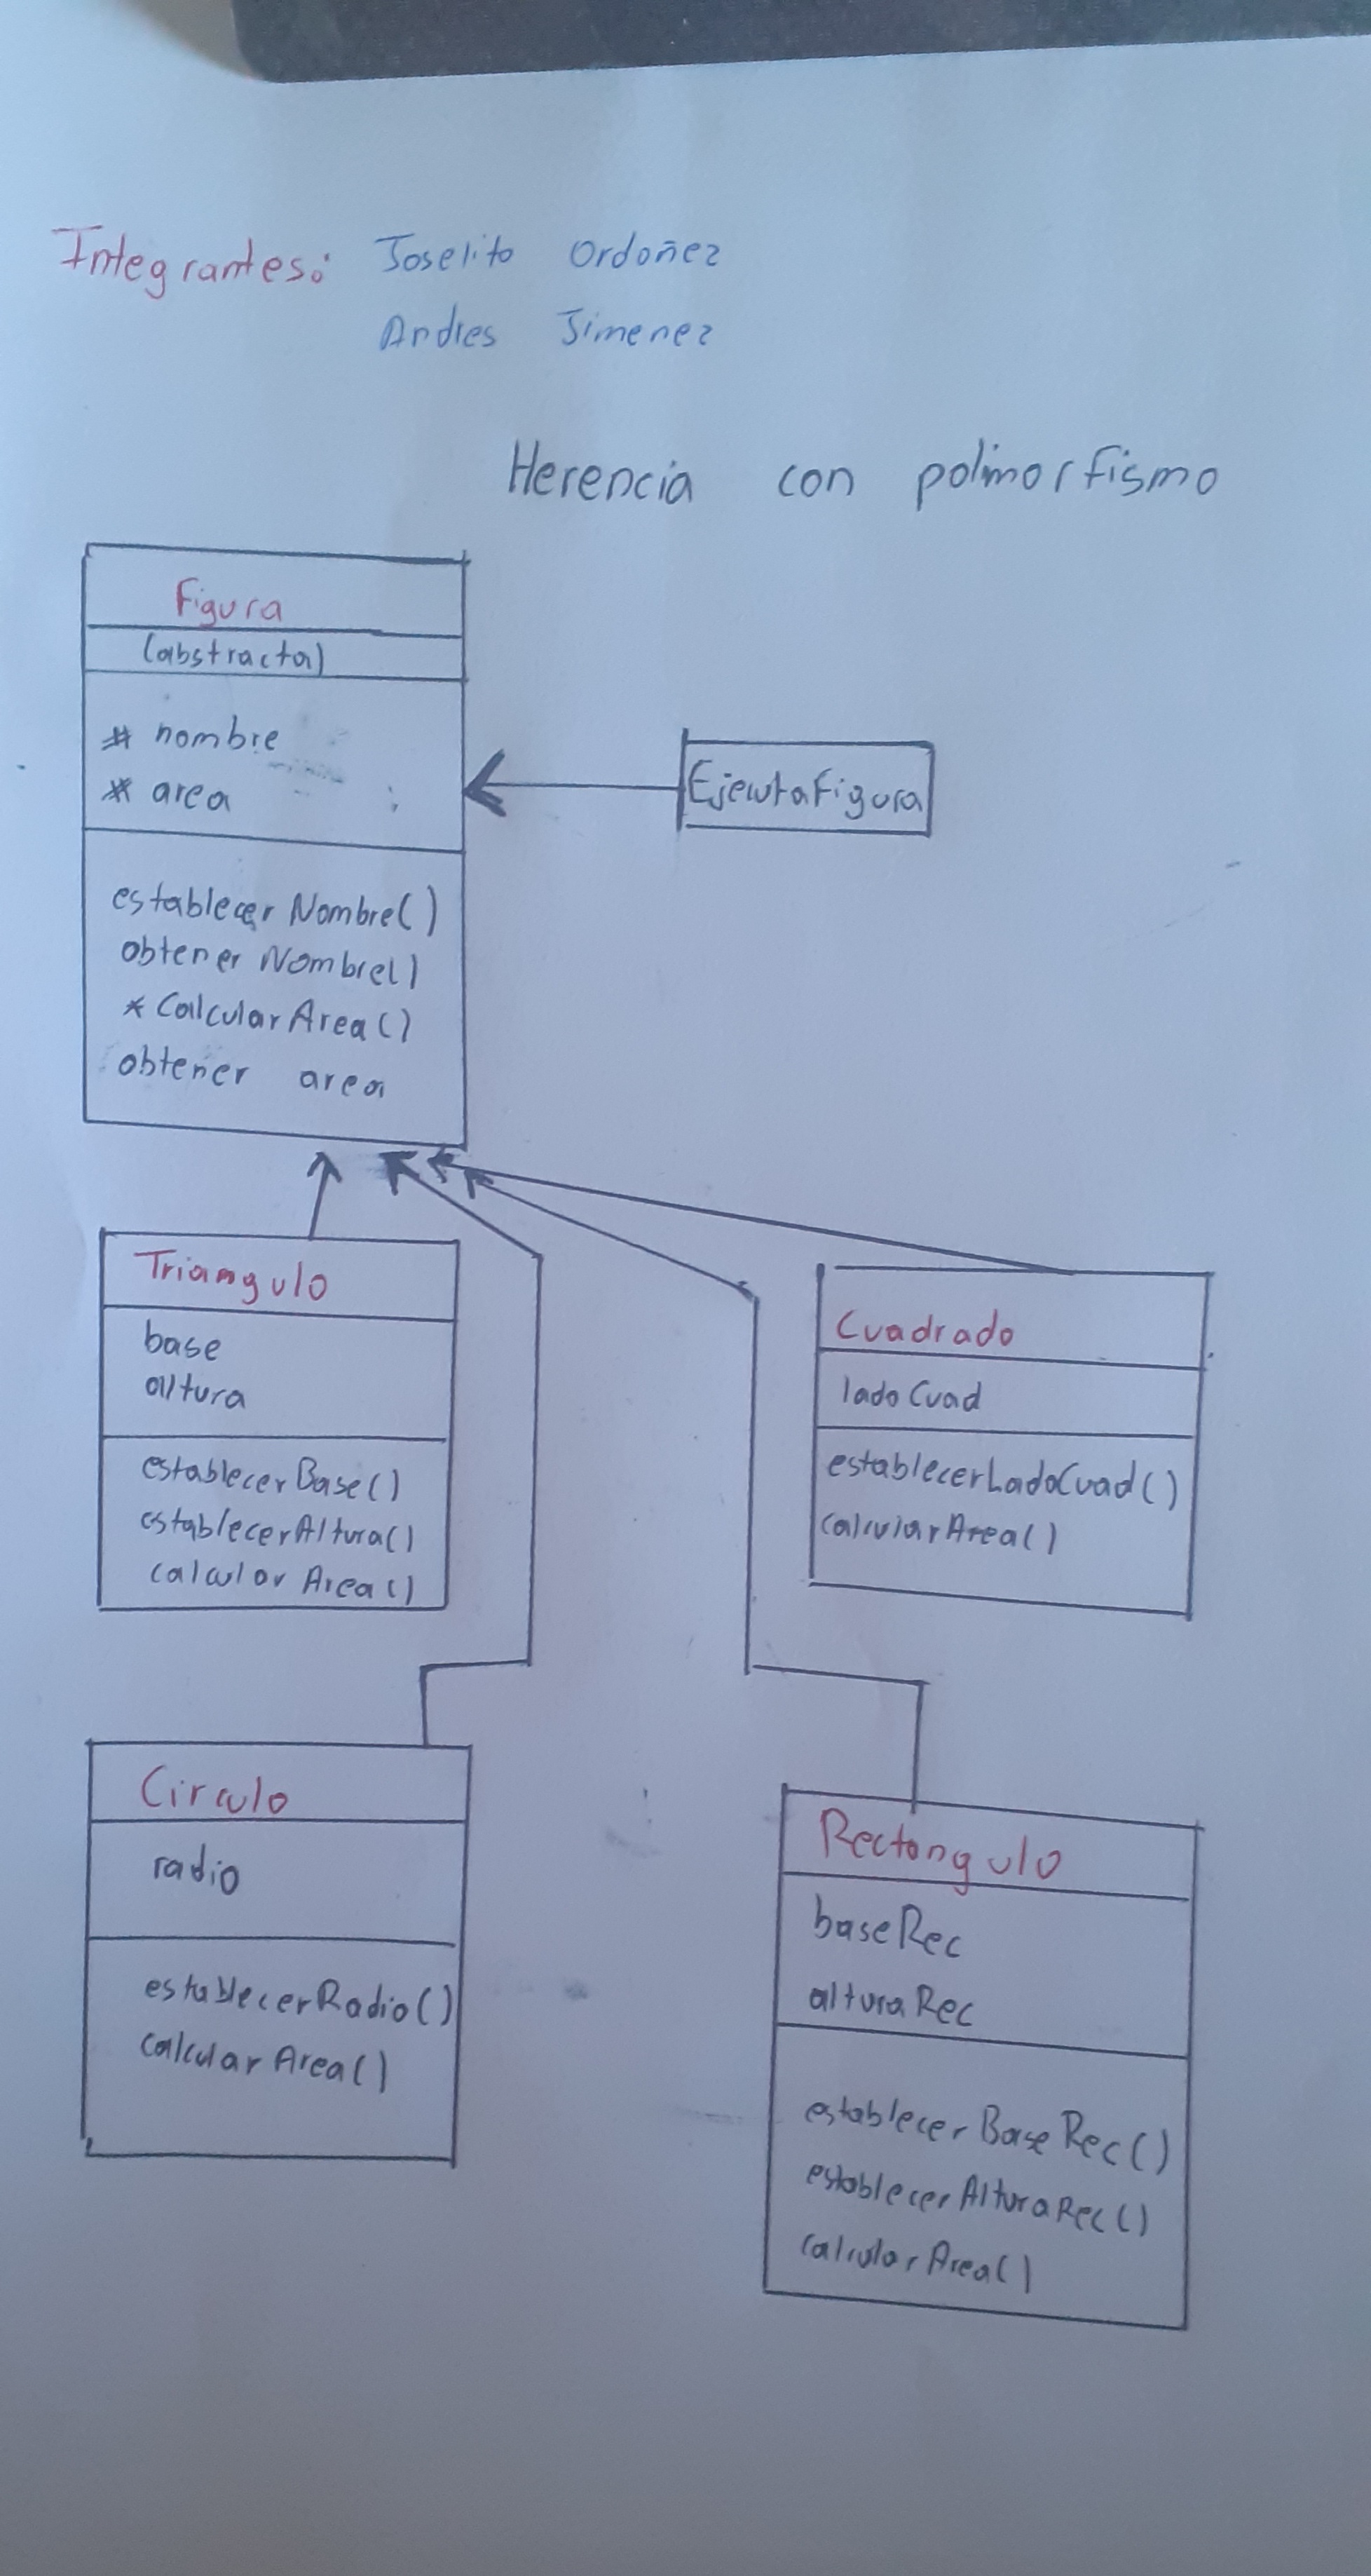 Integrantes: Joselito Ordoñez
Andres Jimenez
Herencia con polimorfismo
Figura
(abstracta)
# nombre
* area
EjecutaFigura
establecer Nombre()
obtener Nombre()
* CalcularArea()
obtener area
Triangulo
base
altura
establecerBase()
establecerAltura()
calcular Area()
Cuadrado
ladoCuad
establecerLadoCuad()
calcularArea()
Circulo
radio
establecerRadio()
calcularArea()
Rectangulo
baseRec
alturaRec
establecerBaseRec()
establecerAlturaRec()
calcularArea()